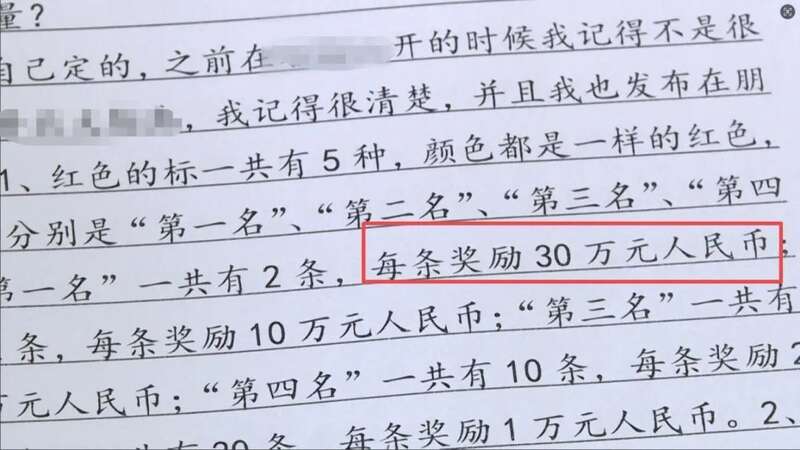 量？
自己定的，之前在 开的时候我记得不是很
，我记得很清楚，并且我也发布在朋
1、红色的标一共有5种，颜色都是一样的红色，
分别是“第一名”、“第二名”、“第三名”、“第四
第一名”一共有2条，每条奖励30万元人民币；
条，每条奖励10万元人民币；“第三名”一共有
万元人民币；“第四名”一共有10条，每条奖励2
共有20条，每条奖励1万元人民币。2、